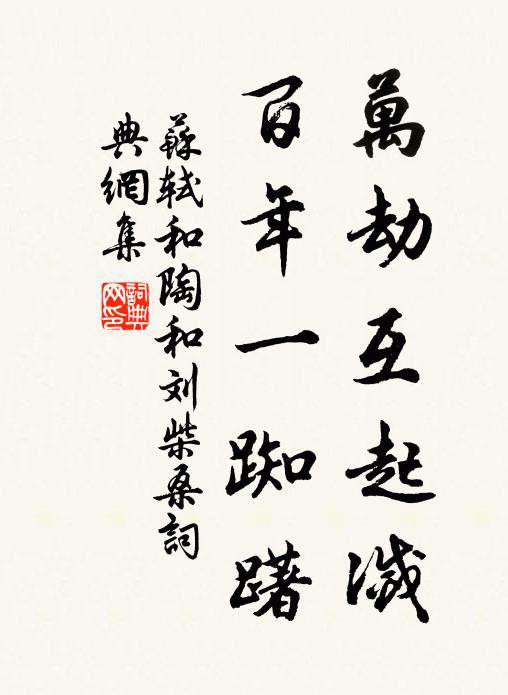 萬劫互起滅
百年一踟躇
蘇軾和陶和刘柴桑詞
典網集
詞典
网印